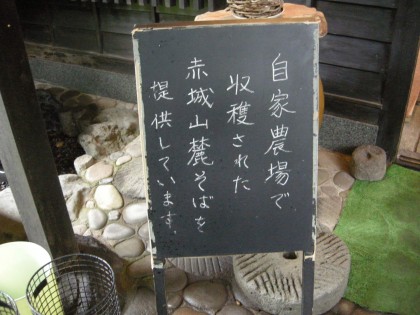 自家農場で
収穫された
赤城山麓そばを
提供しています。